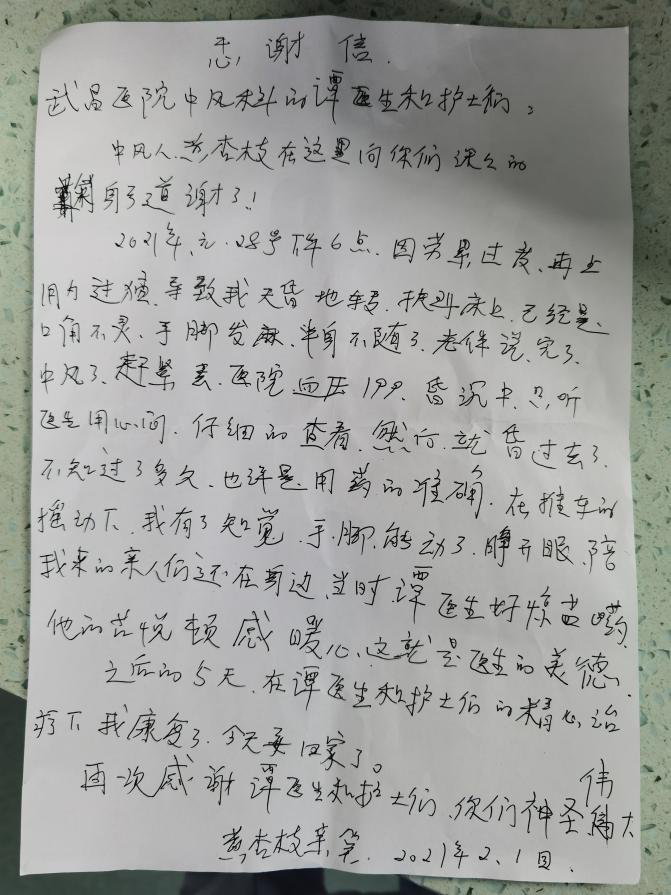 感谢信.
武昌医院中风科的谭医生和护士们。
中风人.黄杏枝在这里向你们说么的
身弓道谢了!!
2021年.元.28号下午6点.因劳累过度、再上
用力过猛.导致我天昏地转.扶到床上.已经是
口角不灵.手脚发麻.半身不随了.老伴说.完了.
中风了.赶紧去.医院血压199.昏沉中.只听
医生用心问.仔细的查看.然后.就昏过去了.
不知过了多久.也许是用药的准确.在推车的
摇动下.我有了知觉.手.脚.能动了.睁开眼.陪
我来的亲人们还在身边.当时.谭医生好惊喜哟.
他的喜悦顿感暖心.这就是医生的美德.
之后的5天.在谭医生和护士们的精心治
疗下我康复了.今天要回家了。
再次感谢谭医生和护士们.你们神圣伟大
黄杏枝亲笔.2021年2.1日.